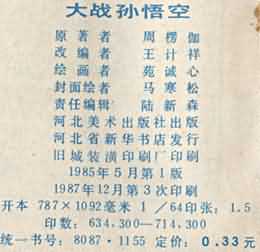 大战孙悟空
原著者 周楞伽
改编者 王计祥
绘画者 苑诚心
封面绘者 马寒松
责任编辑 陆新森
河北美术出版社出版
河北省新华书店发行
旧城装潢印刷厂印刷
1985年5月第1版
1987年12月第3次印刷
开本 787×1092毫米 1/64印张：1.5
印数：634,300—714,300
统一书号：8087·1155 定价：0.33元